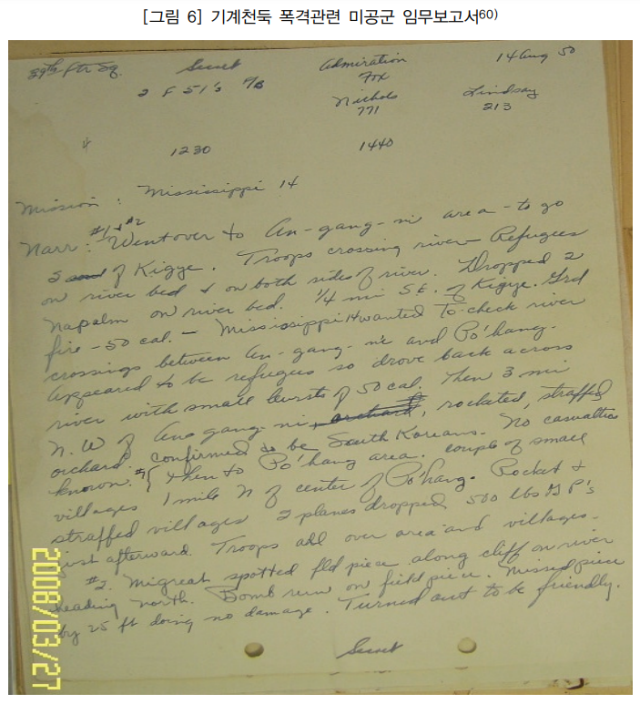 [그림 6] 기계천둑 폭격관련 미공군 임무보고서60)
39th Ftr Sq. Secret Admiration 14 Aug 50
2 F 51's Fox
Nichols Lindsay
771 213
1230 1440
Mission: Mississippi 14
#1 & #2
Narr: Went over to An-gang-ni area - to go
S of Kigye. Troops crossing river - Refugees
on river bed & on both sides of river. Dropped 2
napalm on river bed. 1/4 mi SE. of Kigye. Grd
fire - 50 cal. - Mississippi wanted to check river
crossings between An-gang-ni and Po'hang.
Appeared to be refugees so drove back across
river with small bursts of 50 cal. Then 3 mi
N.W of Ang gang-ni, orchard, rocketed, straffed
orchard confirmed to be South Koreans. No casualties
known. then to Po'hang area. couple of small
villages 1 mile N of center of Po'hang. Rocket &
straffed villages 2 planes dropped 500 lbs G P's
just afterward. Troops all over area and villages.
#2. spotted fld piece along cliff on river
heading north. Bomb run on field piece. Missed piece
by 25 ft doing no damage. Turned out to be friendly.
Secret
2008/03/27